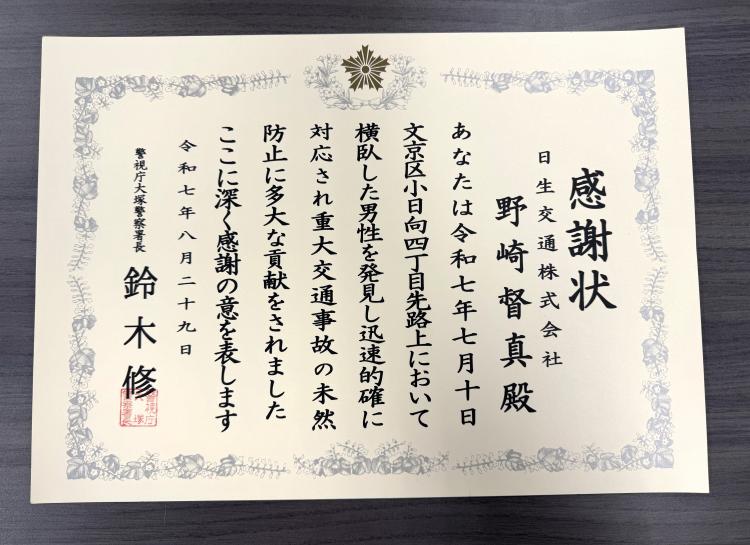 感謝状
日生交通株式会社
野崎督真殿
あなたは令和七年七月十日
文京区小日向四丁目先路上において
横臥した男性を発見し迅速的確に
対応され重大交通事故の未然
防止に多大な貢献をされました
ここに深く感謝の意を表します
令和七年八月二十九日
警視庁大塚警察署長
鈴木修